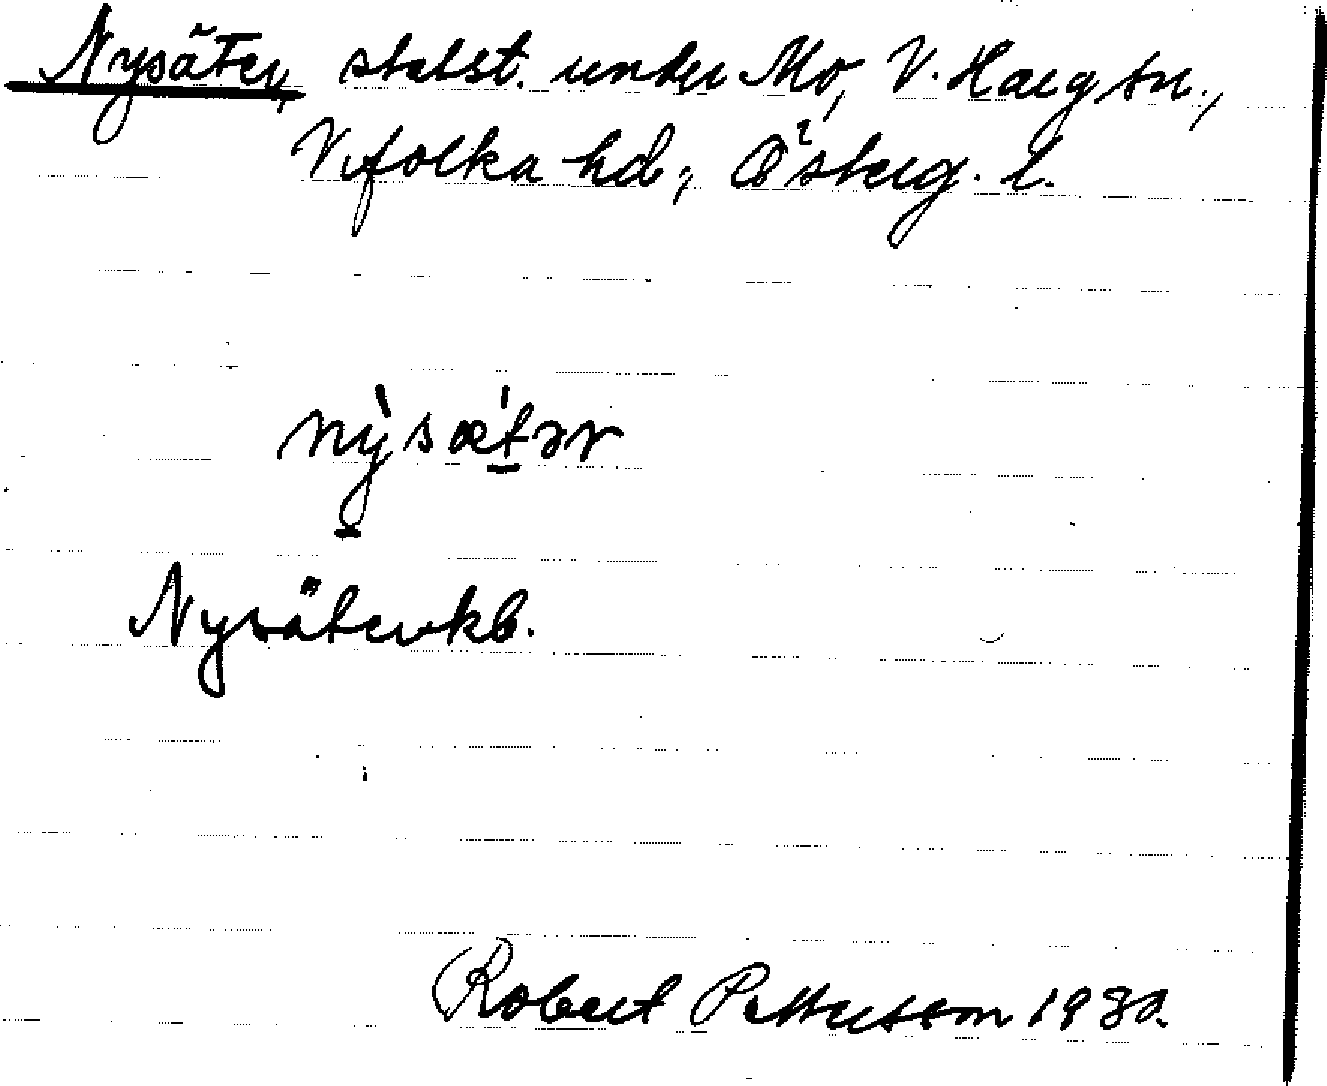 Nysäter, statst. under Mo, V. Harg sn.,
Vifolka hd, Österg. l.
nỳsæ̀tər
Nysäterkb.
Robert Pettersson 1930.